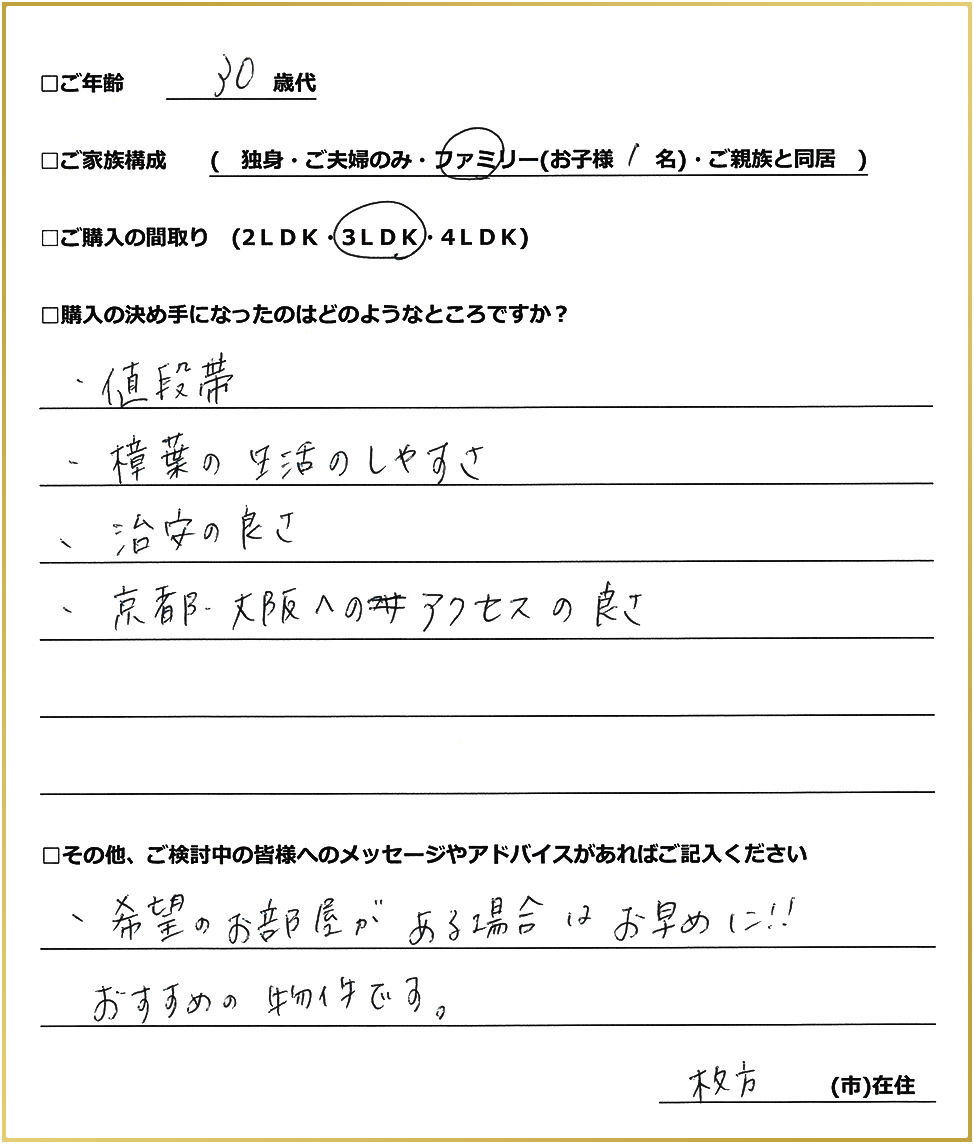 □ご年齢 30 歳代
□ご家族構成 ( 独身・ご夫婦のみ・ファミリー(お子様 1 名)・ご親族と同居 )
□ご購入の間取り (2LDK・3LDK・4LDK)
□購入の決め手になったのはどのようなところですか？
・値段帯
・樟葉の生活のしやすさ
・治安の良さ
・京都・大阪へのアクセスの良さ
□その他、ご検討中の皆様へのメッセージやアドバイスがあればご記入ください
・希望のお部屋がある場合はお早めに!!
おすすめの物件です。
枚方 (市)在住